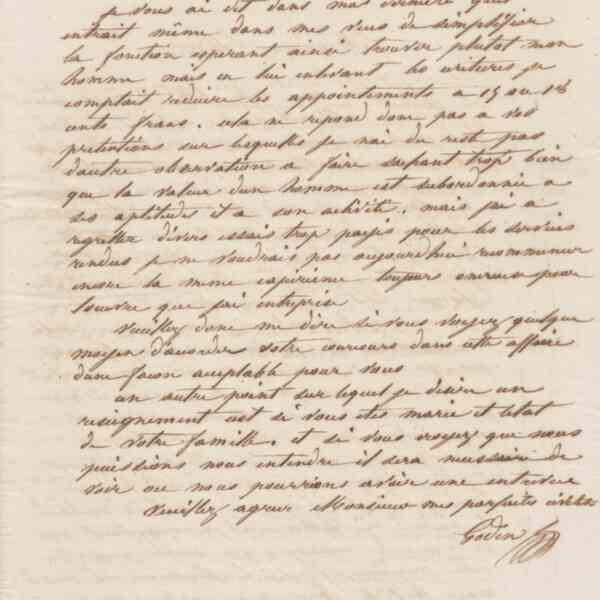 je vous ai dit dans ma dernière qu'il
entrait même dans mes vues de simplifier
la fonction esperant ainsi trouver plutot mon
homme mais en lui enlevant les ecritures je
comptait reduire les appointements a 15 ou 18
cents frans. cela ne repond donc pas a vos
pretentions sur lesquelles je nai du reste pas
dautre observation a faire sachant trop bien
que la valeur dun homme est subordonnée a
ses aptitudes et a son activité. mais jai a
regretter divers essais trop payés pour les services
rendus je ne voudrais pas aujourdhui recommencer
encore la meme experience toujours onereuse pour
louvre que jai entreprise
Veuillez donc me dire si vous voyez quelque
moyen d'accorder votre concours dans cette affaire
dune façon acceptable pour vous
un autre point sur lequel je désire un
resignement est si vous etes marié et letat
de votre famille. et si vous croyez que nous
puissions nous entendre il sera necessaire de
voir ou nous pourrions avoir une entrevue
Veuillez agreer Monsieur mes parfaites civilités
Godin